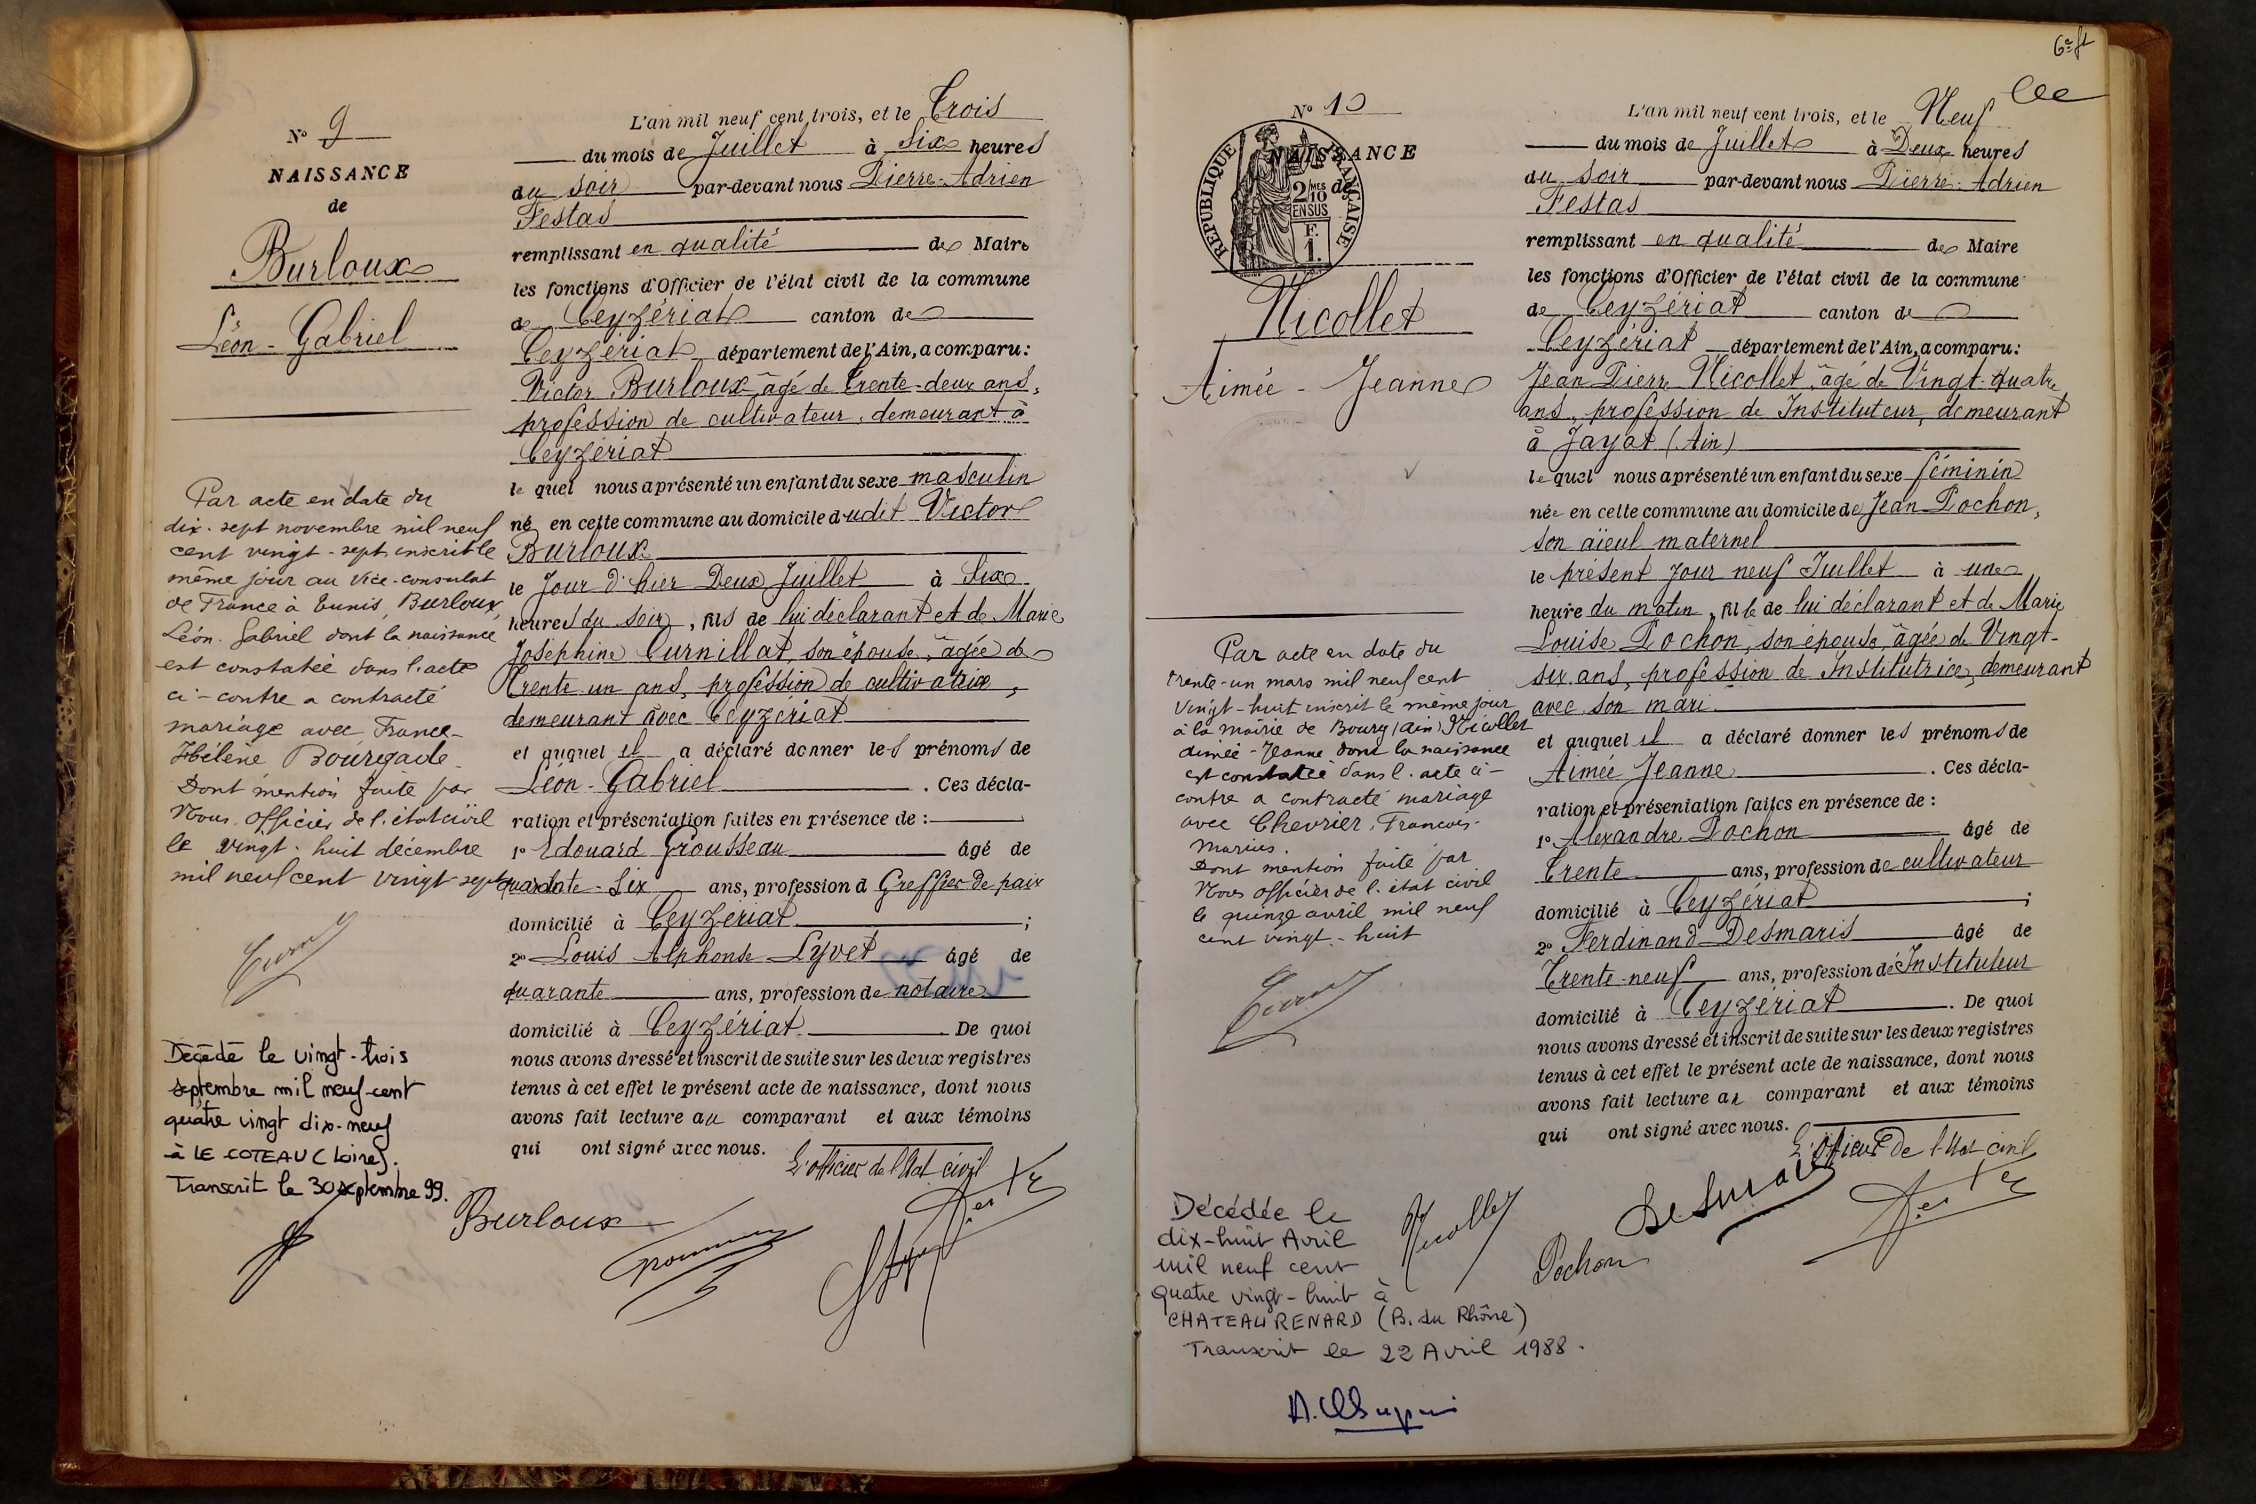 N° 9
NAISSANCE
de
Burloux
Léon-Gabriel
Par acte en date du
dix-sept novembre mil neuf
cent vingt-sept, inscrit le
même jour au vice-consulat
de France à Tunis, Burloux
Léon-Gabriel dont la naissance
est constatée dans l'acte
ci-contre a contracté
mariage avec France-
Hélène
Dont mention faite par
Nous, officier de l'état civil
le vingt-huit décembre
mil neuf cent vingt sept
Décédé le vingt-trois
septembre mil neuf-cent
quatre vingt dix-neuf
à LE COTEAU (Loire).
Transcrit le 30 septembre 99.
L'an mil neuf cent trois, et le Trois
du mois de Juillet à Six heures
du soir par-devant nous Pierre-Adrien
Festas
remplissant en qualité de Maire
les fonctions d'Officier de l'état civil de la commune
de Ceyzériat canton de
Ceyzériat département de l'Ain, a comparu:
Victor Burloux âgé de trente-deux ans,
profession de cultivateur, demeurant à
Ceyzériat
le quel nous a présenté un enfant du sexe masculin
né en cette commune au domicile dudit Victor
Burloux
le Jour d'hier Deux Juillet à Six
heures du soir, fils de lui déclarant et de Marie
Joséphine Curnillat, son épouse, âgée de
Trente un ans, profession de cultivatrice,
demeurant avec Ceyzériat
et auquel il a déclaré donner les prénoms de
Léon-Gabriel. Ces décla-
ration et présentation faites en présence de :
1° Edouard Grousseau âgé de
quarante-Six ans, profession d Greffier de paix
domicilié à Ceyzériat ;
2° Louis Alphonse Lyvet âgé de
quarante ans, profession de notaire
domicilié à Ceyzériat. De quoi
nous avons dressé et inscrit de suite sur les deux registres
tenus à cet effet le présent acte de naissance, dont nous
avons fait lecture au comparant et aux témoins
qui ont signé avec nous.
L'officier de l'état civil
Burloux
6e ft
N° 10
NAISSANCE
de
REPUBLIQUE FRANÇAISE
2 MES
10
EN SUS
F.
1.
Nicollet
Aimée-Jeanne
Par acte en date du
trente-un mars mil neuf cent
vingt-huit inscrit le même jour
à la mairie de Bourg (Ain) Nicollet
Aimée-Jeanne dont la naissance
est constatée dans l'acte ci-
contre a contracté mariage
avec Chevrier, François-
Marius.
Dont mention faite par
Nous officier de l'état civil
le quinze avril mil neuf
cent vingt-huit
Décédée le
dix-huit Avril
mil neuf cent
quatre vingt-huit à
CHATEAU RENARD (B. du Rhône)
Transcrit le 22 Avril 1988.
L'an mil neuf cent trois, et le Neuf
du mois de Juillet à Deux heures
du soir par-devant nous Pierre-Adrien
Festas
remplissant en qualité de Maire
les fonctions d'Officier de l'état civil de la commune
de Ceyzériat canton de
Ceyzériat département de l'Ain, a comparu:
Jean Pierre Nicollet, âgé de Vingt-quatre
ans, profession de Instituteur, demeurant
à Jayat (Ain)
le quel nous a présenté un enfant du sexe féminin
née en cette commune au domicile de Jean Pochon,
son aïeul maternel
le présent jour neuf Juillet à une
heure du matin, fille de lui déclarant et de Marie
Louise Pochon, son épouse, âgée de Vingt-
six ans, profession de Institutrice, demeurant
avec son mari
et auquel il a déclaré donner les prénoms de
Aimée Jeanne. Ces décla-
ration et présentation faites en présence de :
1° Alexandre Pochon âgé de
Trente ans, profession de cultivateur
domicilié à Ceyzériat ;
2° Ferdinand Desmaris âgé de
Trente-neuf ans, profession d'Instituteur
domicilié à Ceyzériat. De quoi
nous avons dressé et inscrit de suite sur les deux registres
tenus à cet effet le présent acte de naissance, dont nous
avons fait lecture au comparant et aux témoins
qui ont signé avec nous.
L'officier de l'état civil
Nicollet
Pochon
Desmaris